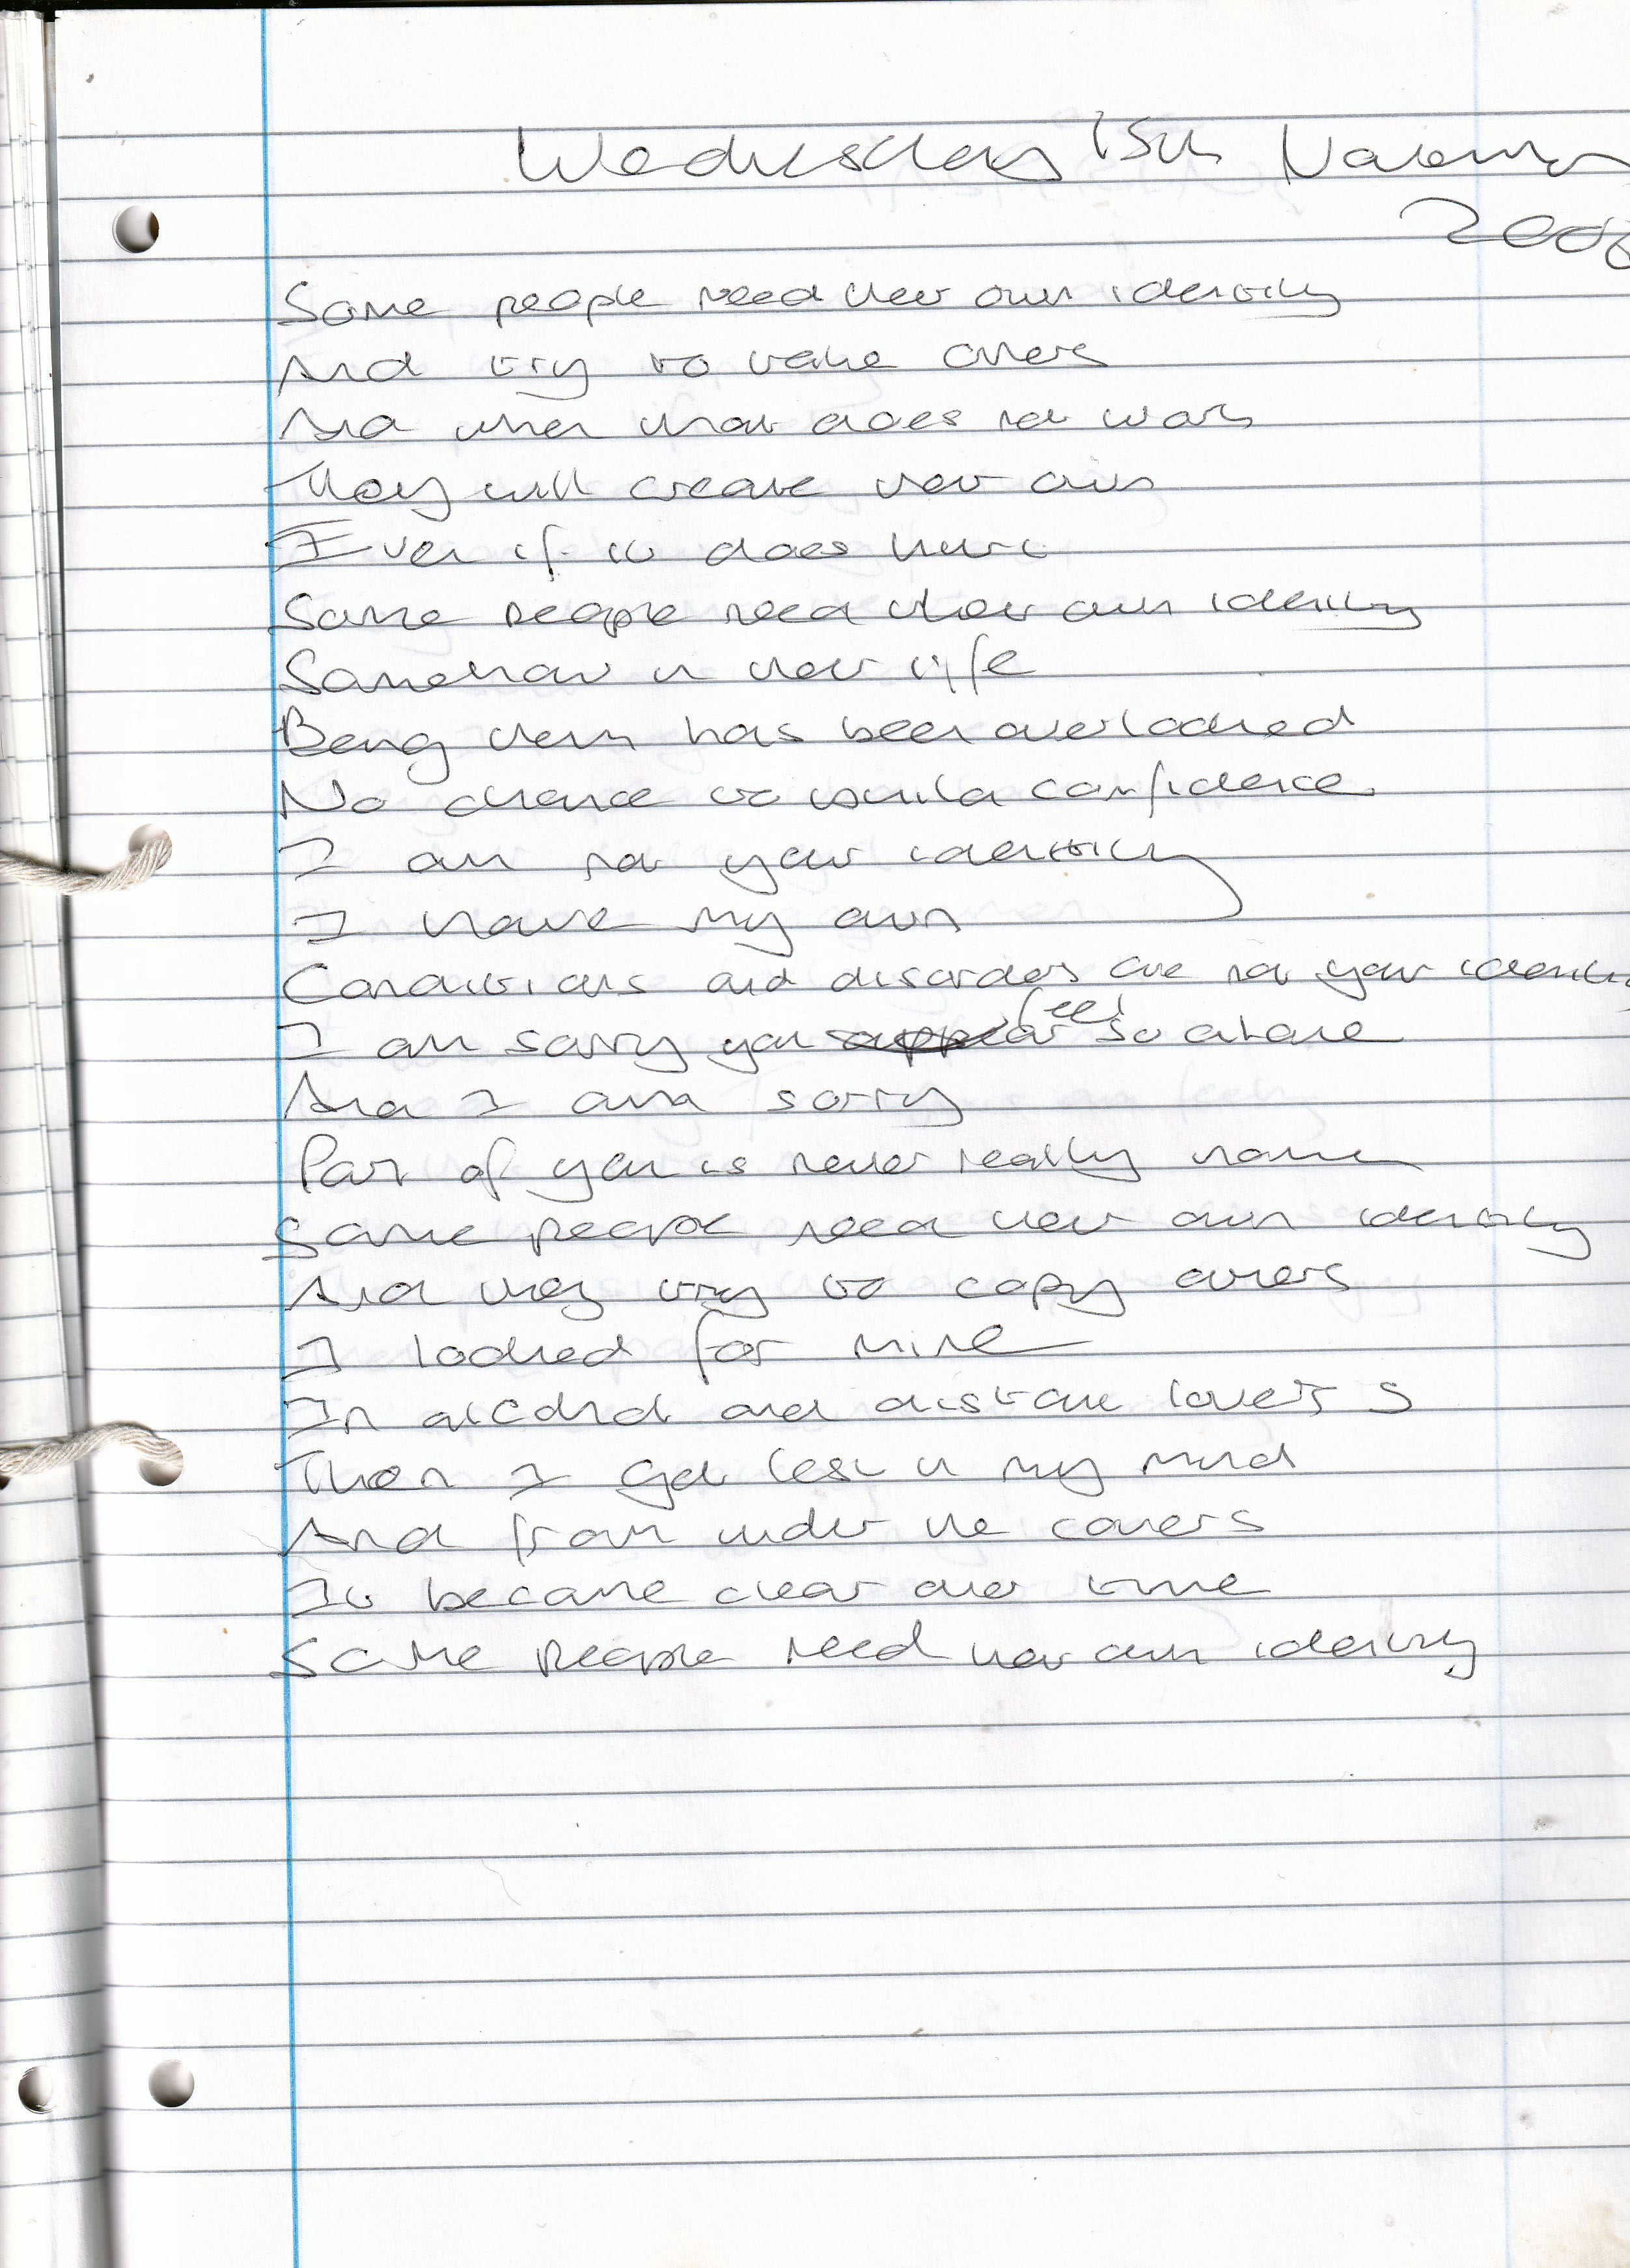 Wednesday 15th November
2006
Some people need their own identity
And try to take others
And when that does not work
They will create their own
Even if it does hurt
Some people need their own identity
Somehow in their life
Being them has been overlooked
No chance to build confidence
I am not your identity
I have my own
Conditions and disorders are not your identity
I am sorry you appear feel so alone
And I am sorry
Part of you is never really home
Some people need their own identity
And they try to copy others
I looked for mine
In alcohol and distant lovers
Then I got lost in my mind
And from under the covers
It became clear over time
Some people need their own identity